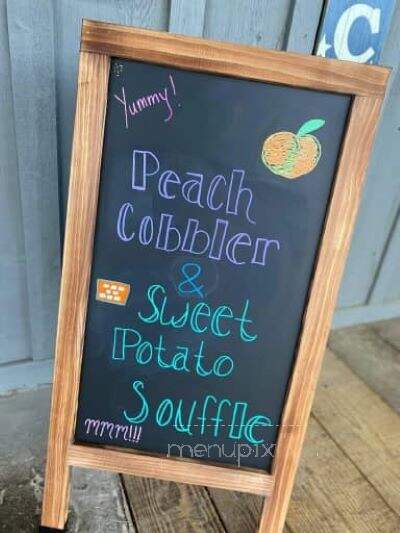 C
Yummy!
Peach
Cobbler
&
Sweet
Potato
Souffle
mmm!!!
menupix